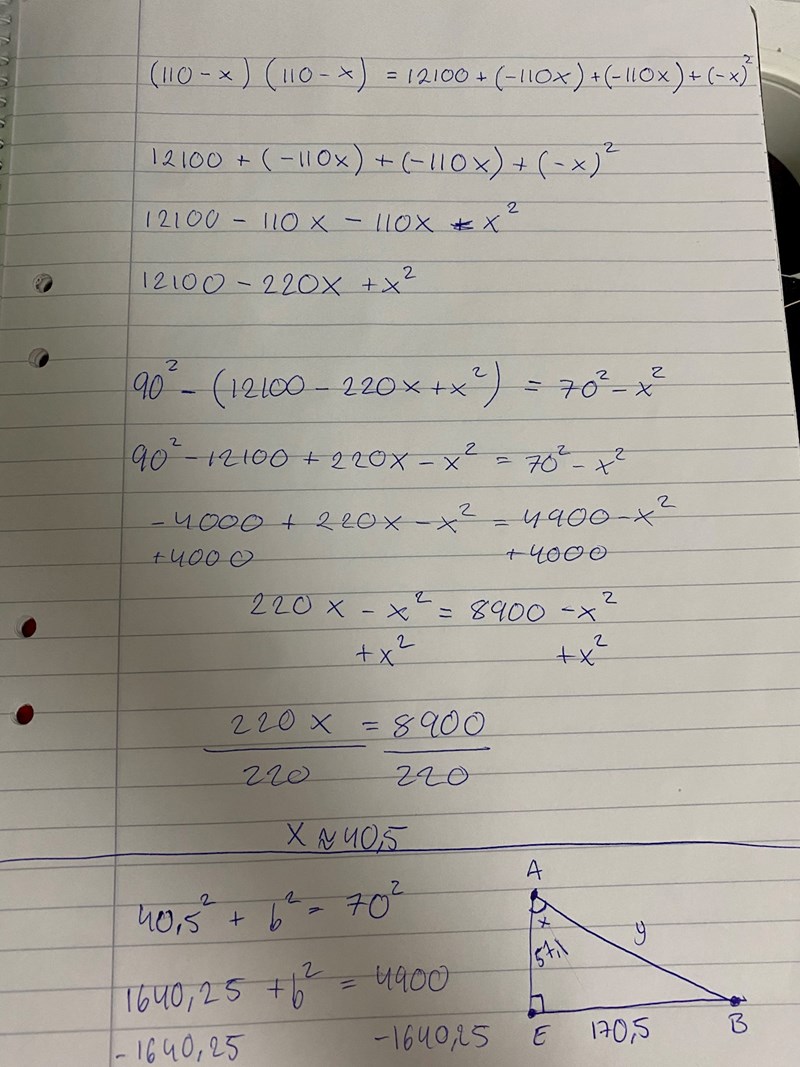 (110-x) (110-x) = 12100 + (-110x) + (-110x) + (-x)²
12100 + (-110x) + (-110x) + (-x)²
12100 - 110x - 110x + x²
12100 - 220x + x²
90² - (12100 - 220x + x²) = 70² - x²
90² - 12100 + 220x - x² = 70² - x²
-4000 + 220x - x² = 4900 - x²
+4000 +4000
220x - x² = 8900 - x²
+x² +x²
220x = 8900
220 220
x ≈ 40,5
40,5² + b² = 70²
1640,25 + b² = 4900
-1640,25 -1640,25
A
x
y
E 170,5 B